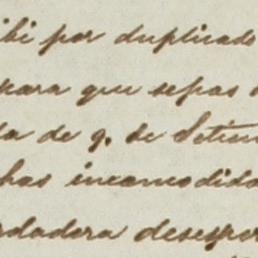 ibi por duplicado
para que sepas
da de 9. de Setiem
has incomodida
dadora desespe